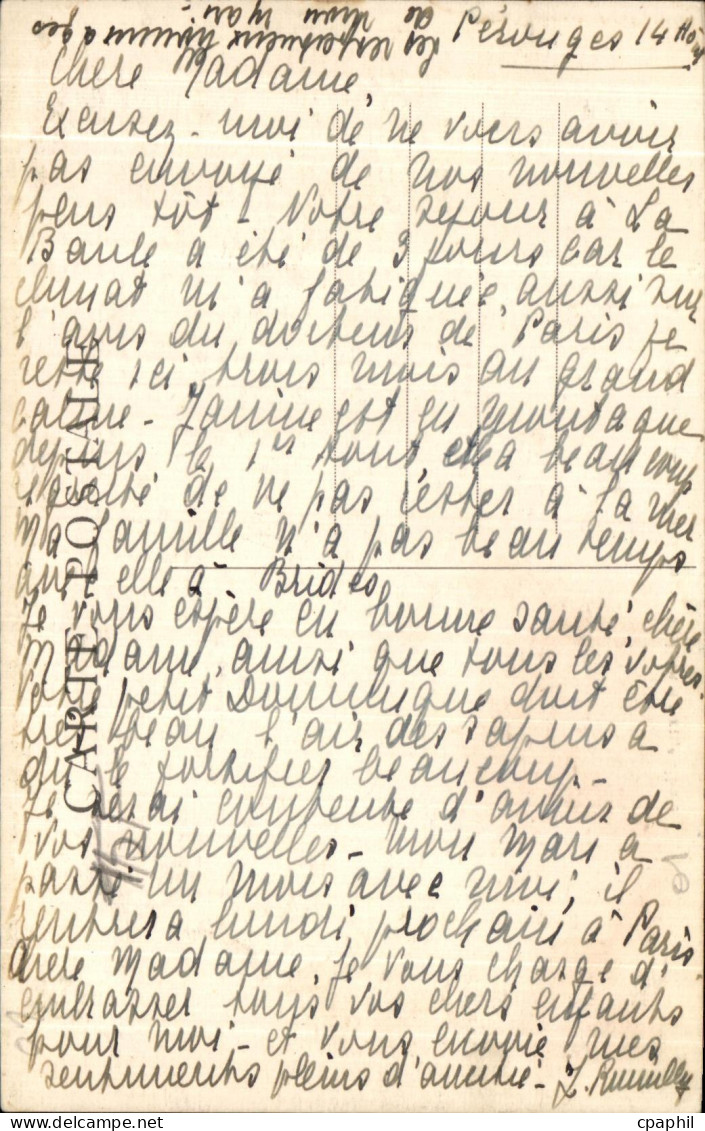 Pérouges 14 Août
Chère Madame,
Excusez-moi de ne vous avoir
pas envoyé de nos nouvelles
plus tôt - Notre séjour à La
Baule a été de 3 jours car le
climat m'a fatiguée, aussi sur
l'avis du docteur de Paris je
reste ici trois mois au grand
calme - Janine est en montagne
depuis le 1er
beaucoup
regretté de ne pas rester à la mer
Ma famille n'a pas beau temps
elle à Brides
Je vous espère en bonne santé, chère
Madame, ainsi que tous les vôtres.
Votre petit Dominique doit être
très beau l'air des sapins a
dû le fortifier beaucoup -
Je serai contente d'avoir de
vos nouvelles - mon mari a
passé un mois avec moi, il
rentrera lundi prochain à Paris
Chère Madame, je vous charge d'
embrasser tous vos chers enfants
pour moi - et vous envoie mes
sentiments pleins d'amitié - J.
les respectueux hommages
de mon mari
CARTE POSTALE
© cpaphil